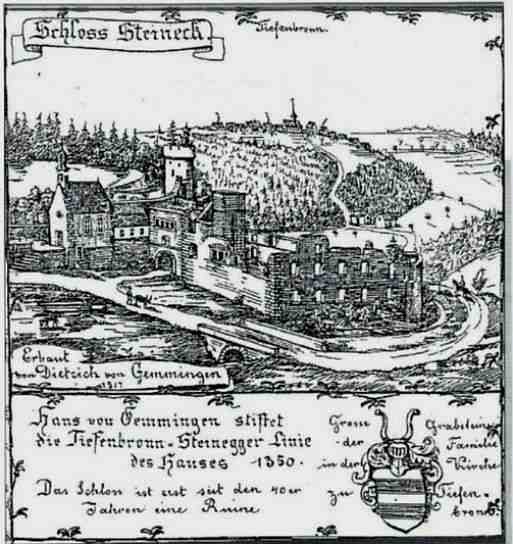 Schloss Steineck
Tiefenbronn.
Erbaut
von Dietrich von Gemmingen
Hans von Gemmingen stiftet
die Tiefenbronn-Steinegger Linie
des Hauses 1350.
Das Schloss ist erst seit den 40er
Jahren eine Ruine
Grabsteine
der Familie
in der Kirche
zu Tiefen-
bronn.